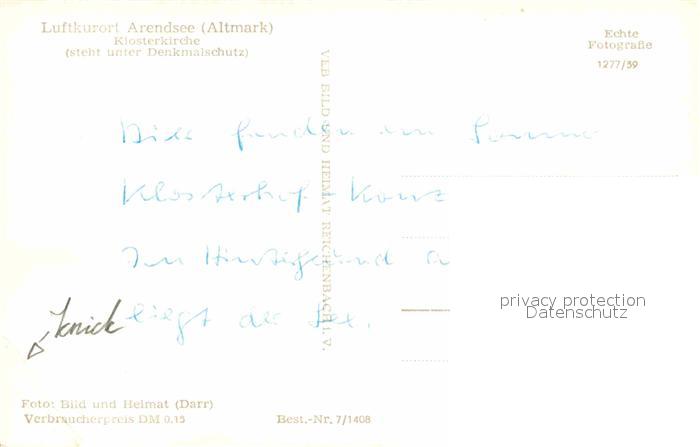 Luftkurort Arendsee (Altmark)
Klosterkirche
(steht unter Denkmalschutz)
Echte
Fotografie
1277/59
VEB BILD UND HEIMAT REICHENBACH I. V.
Hier fanden im Somme
Klosterhof-Konz
Im Hintergrund
liegt der See.
Knick
privacy protection
Datenschutz
Foto: Bild und Heimat (Darr)
Verbraucherpreis DM 0,15
Best.-Nr. 7/1408